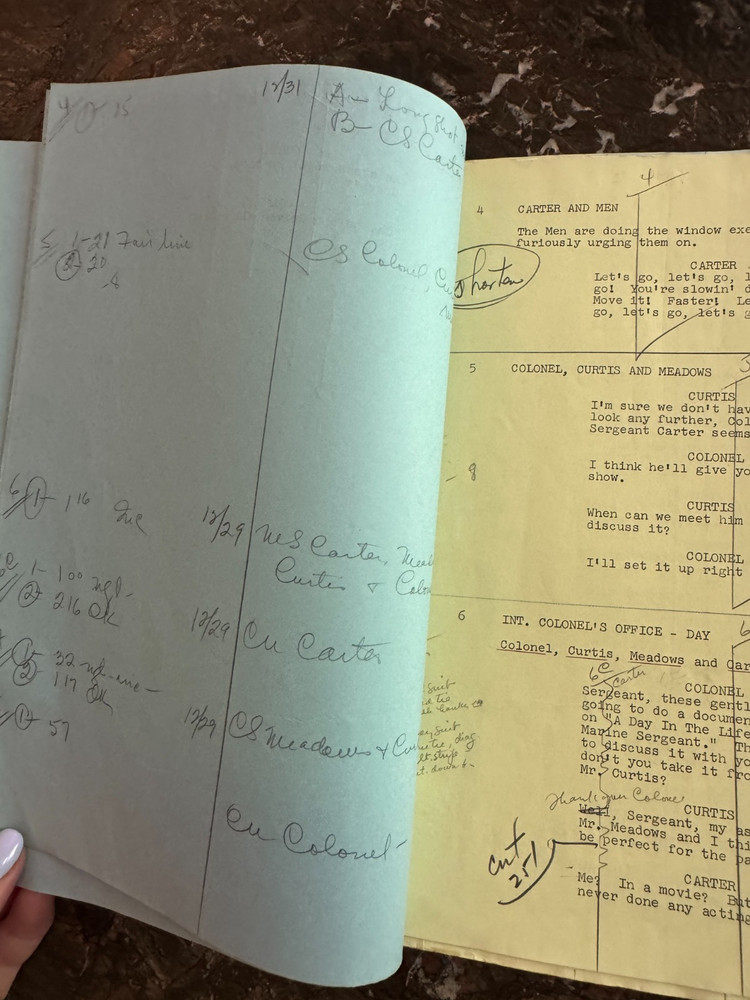 15
12/31
A - Long Shot
B - CS Carte
1-21 Fair line
2-20
CS Colonel, Cu
6
1- 1 16 Inc
12/29
MS Carter, Mead
Curtis + Colon
1- 100 ngd.
2- 216 OK
12/29
CU Carter
1- 32
2- 117 OK
12/29
CS Meadows + Cur
1- 57
CU Colonel
4
4 CARTER AND MEN
The Men are doing the window exe
furiously urging them on.
shorten
CARTER
Let's go, let's go, l
go! You're slowin' d
Move it! Faster! Le
go, let's go, let's g
5 COLONEL, CURTIS AND MEADOWS
CURTIS
I'm sure we don't hav
look any further, Col
Sergeant Carter seems
COLONEL
8
I think he'll give yo
show.
CURTIS
When can we meet him
discuss it?
COLONEL
I'll set it up right
6 INT. COLONEL'S OFFICE - DAY
Colonel, Curtis, Meadows and Car
6C
Carter
COLONEL
Sergeant, these gentl
going to do a documen
on "A Day In The Life
Marine Sergeant." Th
to discuss it with yo
don't you take it fro
Mr. Curtis?
Thank you Colonel
CURTIS
Well, Sergeant, my as
Mr. Meadows and I thi
be perfect for the pa
cut
251
CARTER
Me? In a movie? But
never done any acting